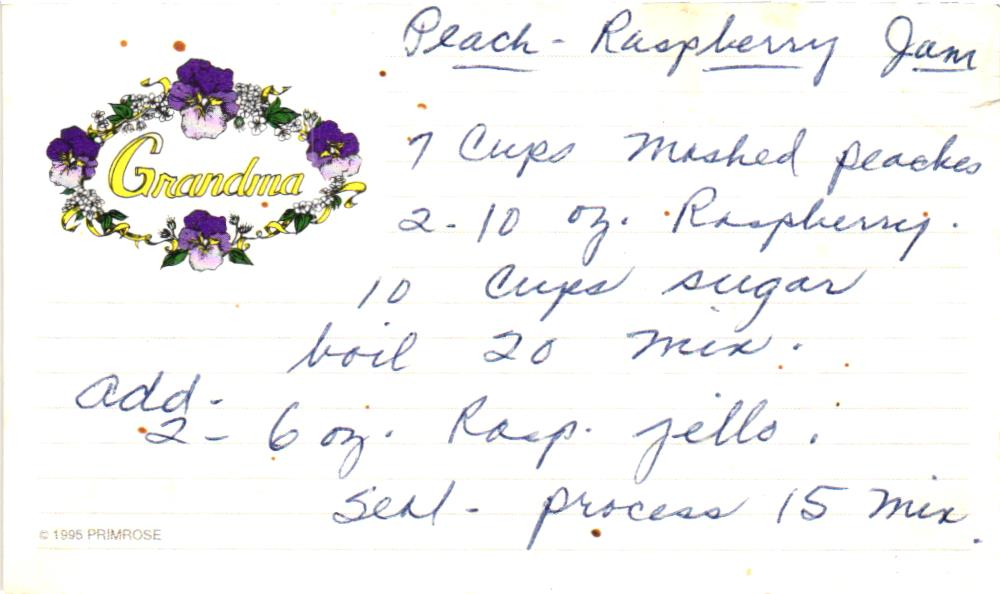 Peach - Raspberry Jam
Grandma
7 Cups mashed peaches
2 - 10 oz. Raspberry.
10 Cups sugar
boil 20 min.
add -
2 - 6 oz. Rasp. jello.
Seal - process 15 min.
© 1995 PRIMROSE